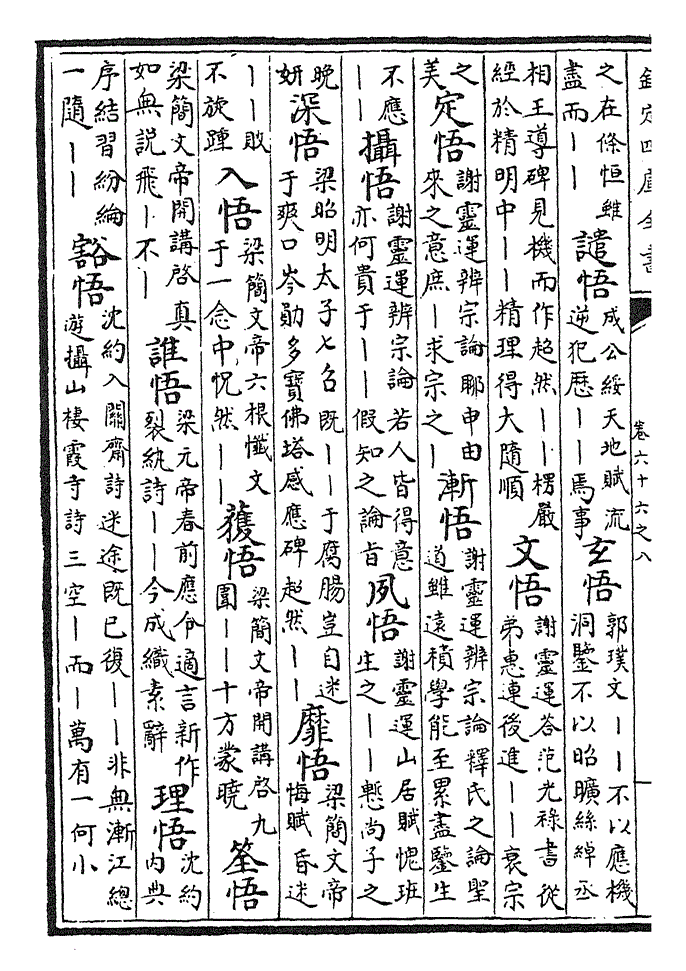 欽定四庫全書
卷六十六之八
之在條恒雖盡而丨丨 譴悟 成公綏天地賦流逆犯歷丨丨焉事 玄悟 郭璞文丨丨不以應機洞鑒不以昭曠絲綽丞
相王導碑見機而作超然丨丨楞嚴經於精明中丨丨精理得大隨順 文悟 謝靈運答范光禄書從弟惠連後進丨丨衰宗
之美 定悟 謝靈運辨宗論聊申由來之意庶丨求宗之丨 漸悟 謝靈運辨宗論釋氏之論聖道雖遠積學能至累盡鑒生
不應丨丨 攝悟 謝靈運辨宗論若人皆得意亦何貴于丨丨假知之論旨 夙悟 謝靈運山居賦愧班生之丨丨慙尚子之
晚妍 深悟 梁昭明太子七召既丨丨于腐腸豈自迷于爽口岑勛多寶佛塔感應碑超然丨丨 靡悟 梁簡文帝悔賦昏迷
丨丨敗不旋踵 入悟 梁簡文帝六根懺文于一念中怳然丨丨 獲悟 梁簡文帝開講啓九圍丨丨十方蒙曉 筌悟
梁簡文帝開講啓真如無説飛丨不丨 誰悟 梁元帝春前應令適言新作裂紈詩丨丨今成織素辭 理悟 沈約内典
序結習紛綸一隨丨丨 豁悟 沈約入關齋詩迷途既已復丨丨非無漸江總遊攝山棲霞寺詩三空丨而丨萬有一何小